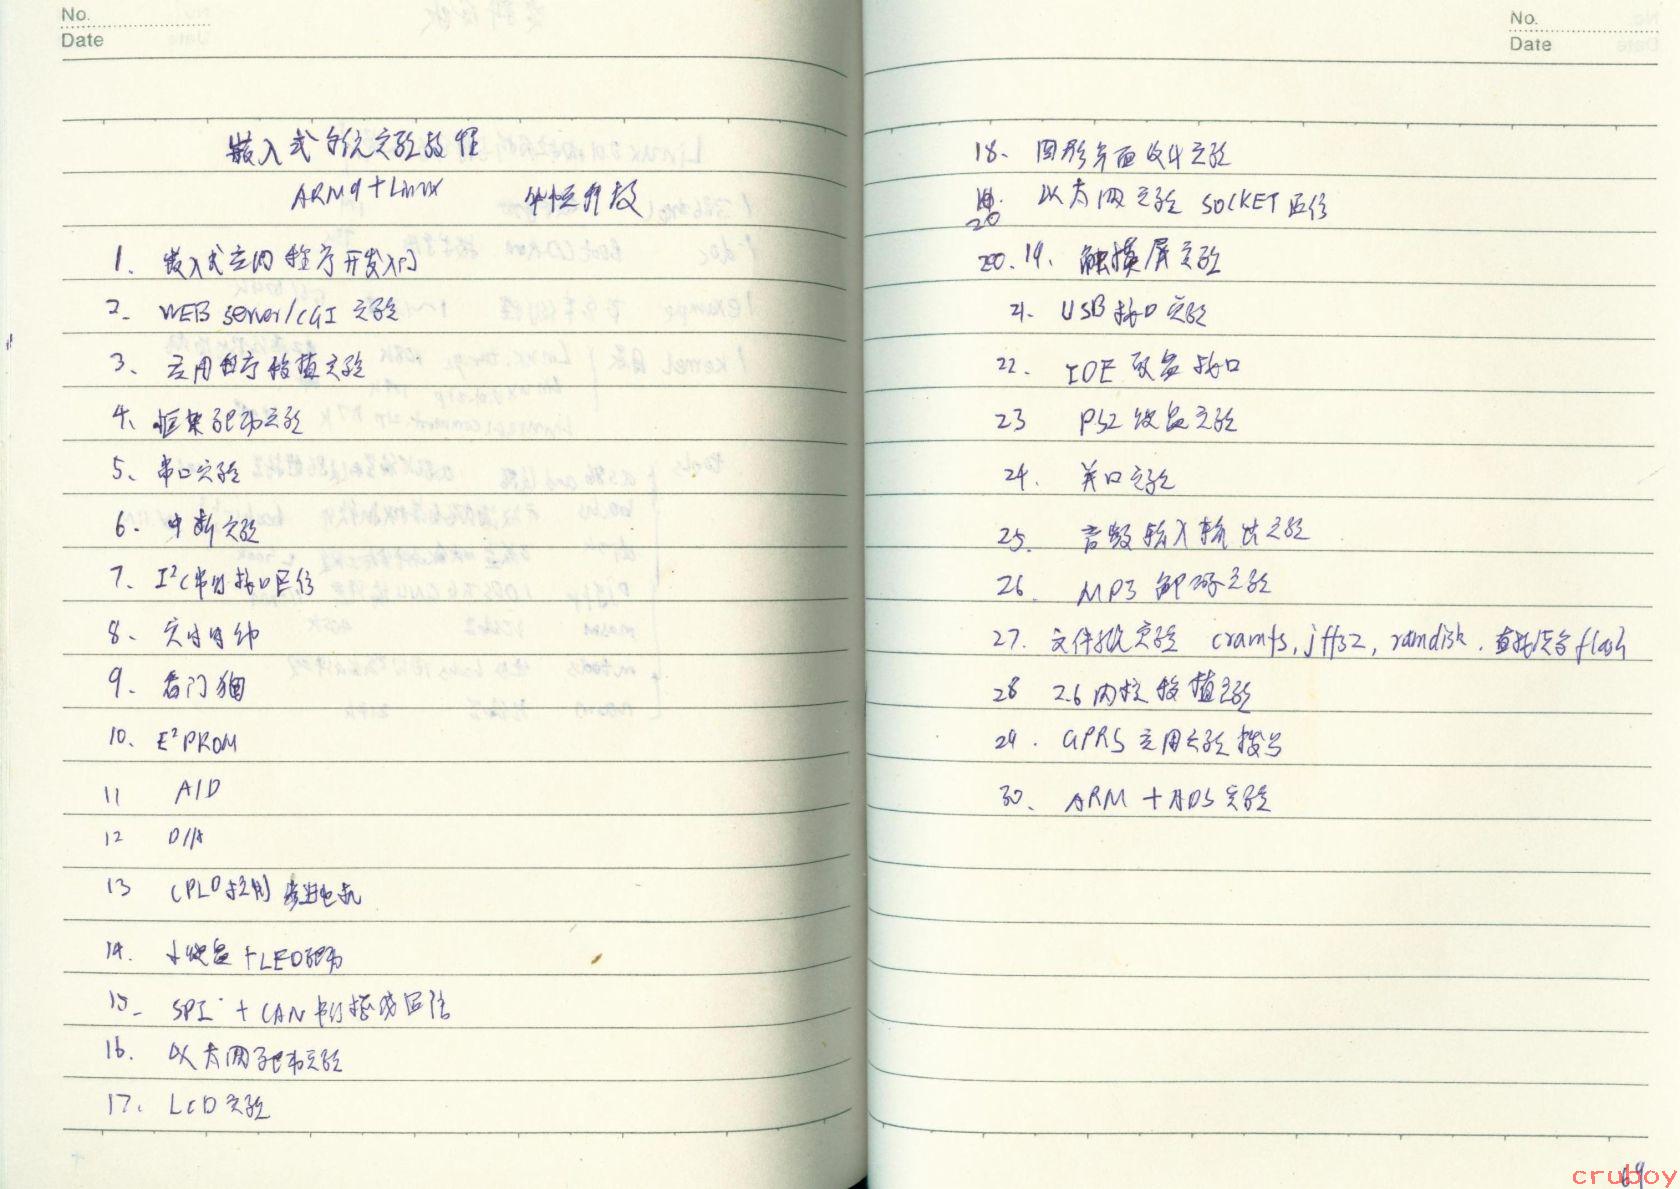 No.
Date
嵌入式系统实验教程
ARM9+Linux 开发
1、嵌入式应用程序开发入门
2、WEB server/CGI 实验
3、应用程序移植实验
4、驱动实验
5、串口实验
6、中断实验
7、I²C串行接口通信
8、实时时钟
9、看门狗
10、E²PROM
11 A/D
12 D/A
13 CPLD控制步进电机
14、小键盘+LED驱动
15、SPI+CAN 通信
16、以太网驱动实验
17、LCD实验
No.
Date
18、图形界面设计实验
20 以太网实验 SOCKET通信
20.19、触摸屏实验
21、USB接口实验
22、IDE 硬盘接口
23 PS2键盘实验
24、并口实验
25、音频输入输出实验
26 MP3 解码实验
27、文件系统实验 cramfs, jffs2, ramdisk, flash
28 2.6内核移植实验
29. GPRS 应用实验 拨号
30、ARM+ADS实验
69
cruboy